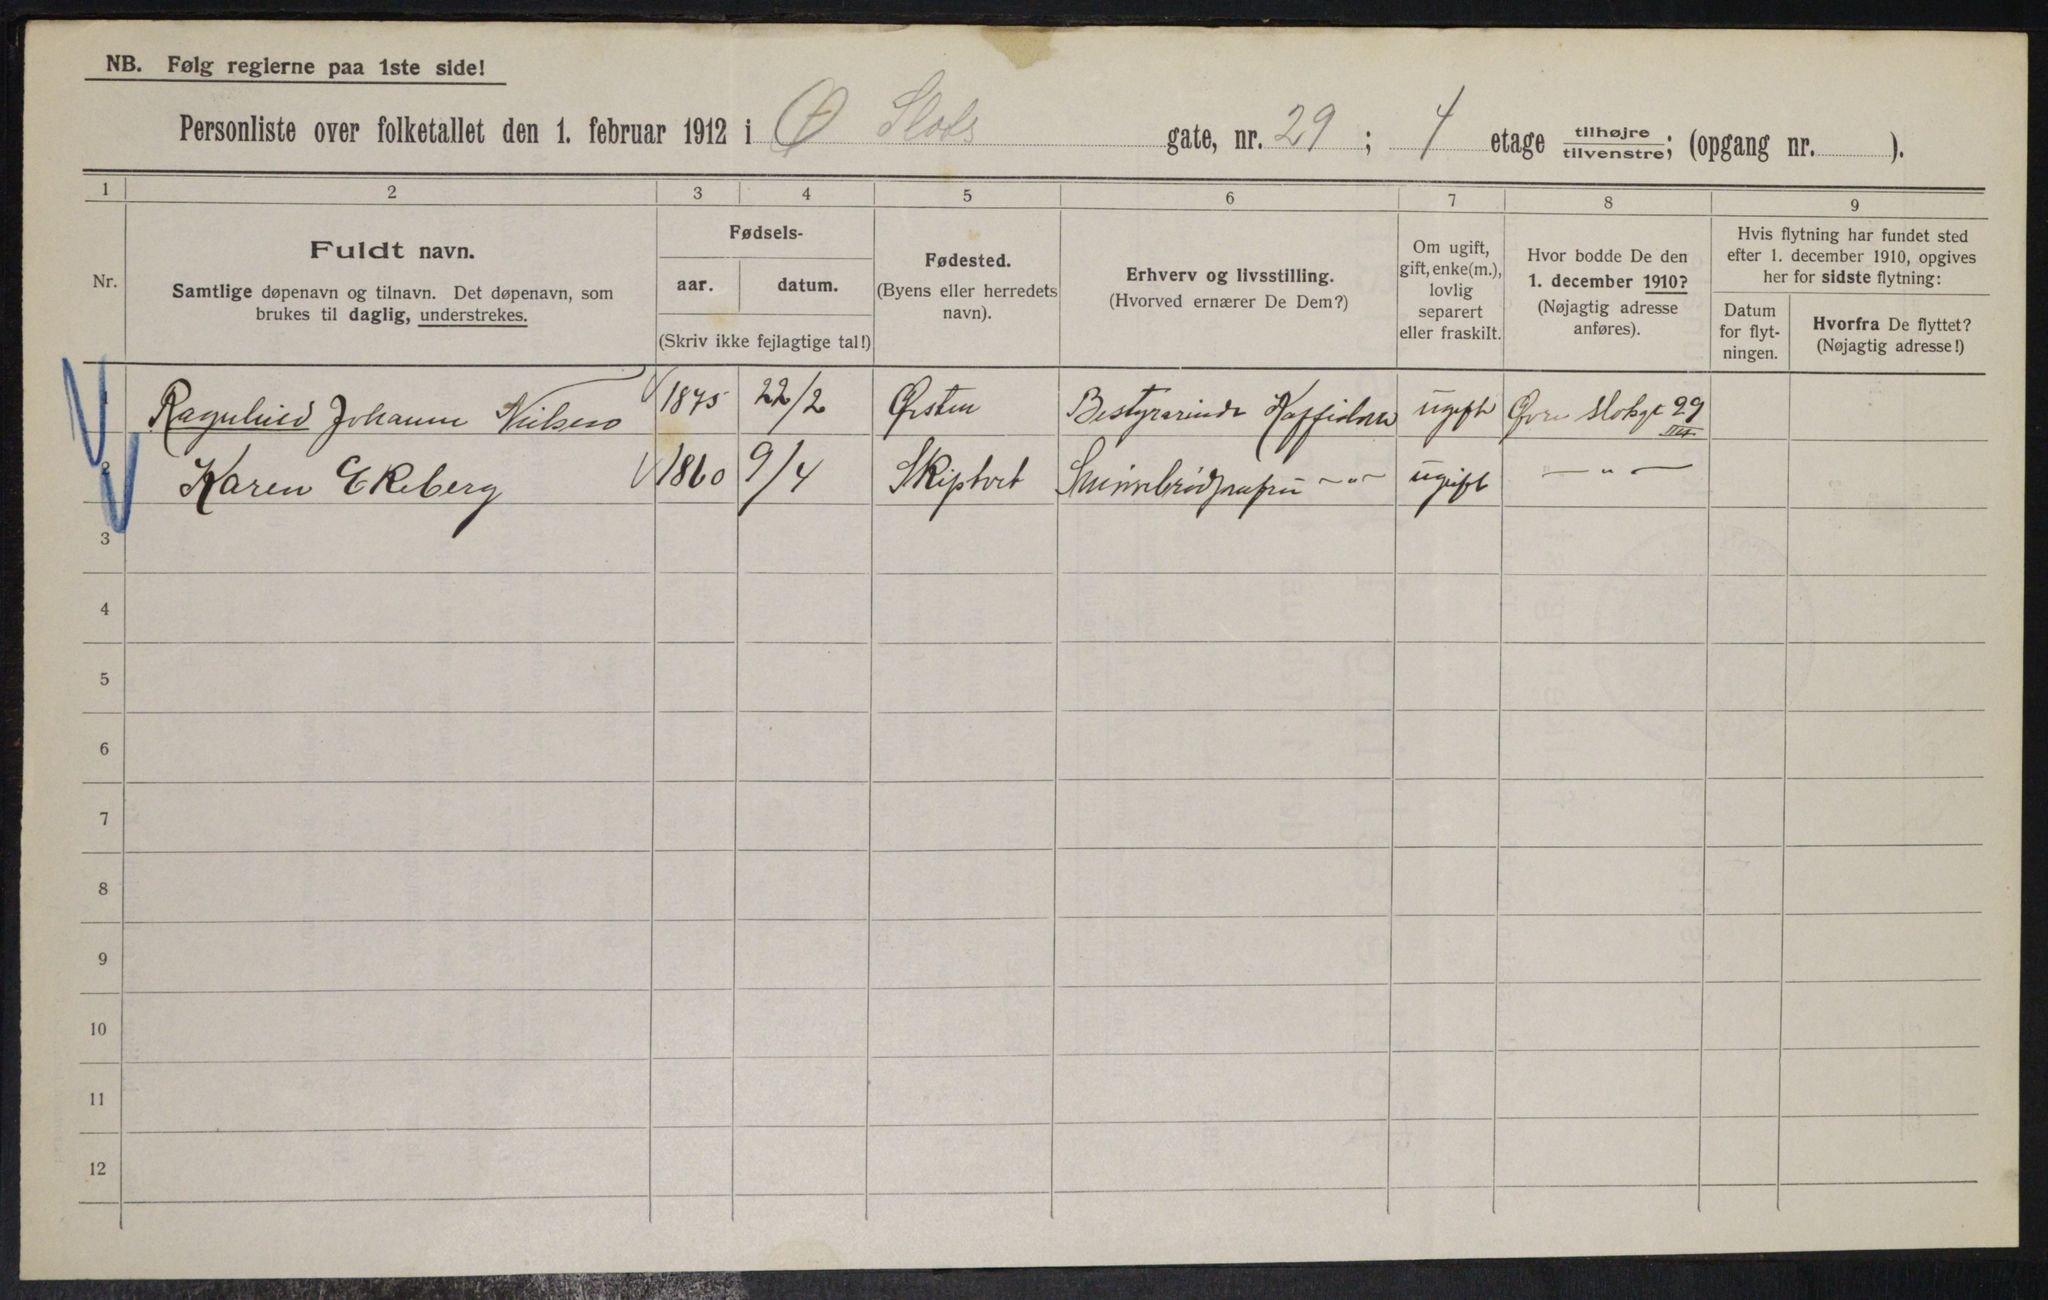 NB. Følg reglerne paa 1ste side!
Personliste over folketallet den 1. februar 1912 i Ø Slots gate, nr. 29 ; 4 etage tilhøjre/tilvenstre; (opgang nr. ).
1 2 3 4 5 6 7 8 9
Nr.
Fuldt navn.
Samtlige døpenavn og tilnavn. Det døpenavn, som
brukes til daglig, understrekes.
Fødsels-
aar. datum.
(Skriv ikke fejlagtige tal!)
Fødested.
(Byens eller herredets
navn).
Erhverv og livsstilling.
(Hvorved ernærer De Dem?)
Om ugift,
gift, enke(m.),
lovlig
separert
eller fraskilt.
Hvor bodde De den
1. december 1910?
(Nøjagtig adresse
anføres).
Hvis flytning har fundet sted
efter 1. december 1910, opgives
her for sidste flytning:
Datum
for flyt-
ningen.
Hvorfra De flyttet?
(Nøjagtig adresse!)
1 Johanne Nielsen 1875 22/2 Ørsten Bestyrerinde ugift Øvre Slotsgt 29
2 Karen Ekeberg 1860 9/4 Skiptvet — " — ugift — " —
3
4
5
6
7
8
9
10
11
12